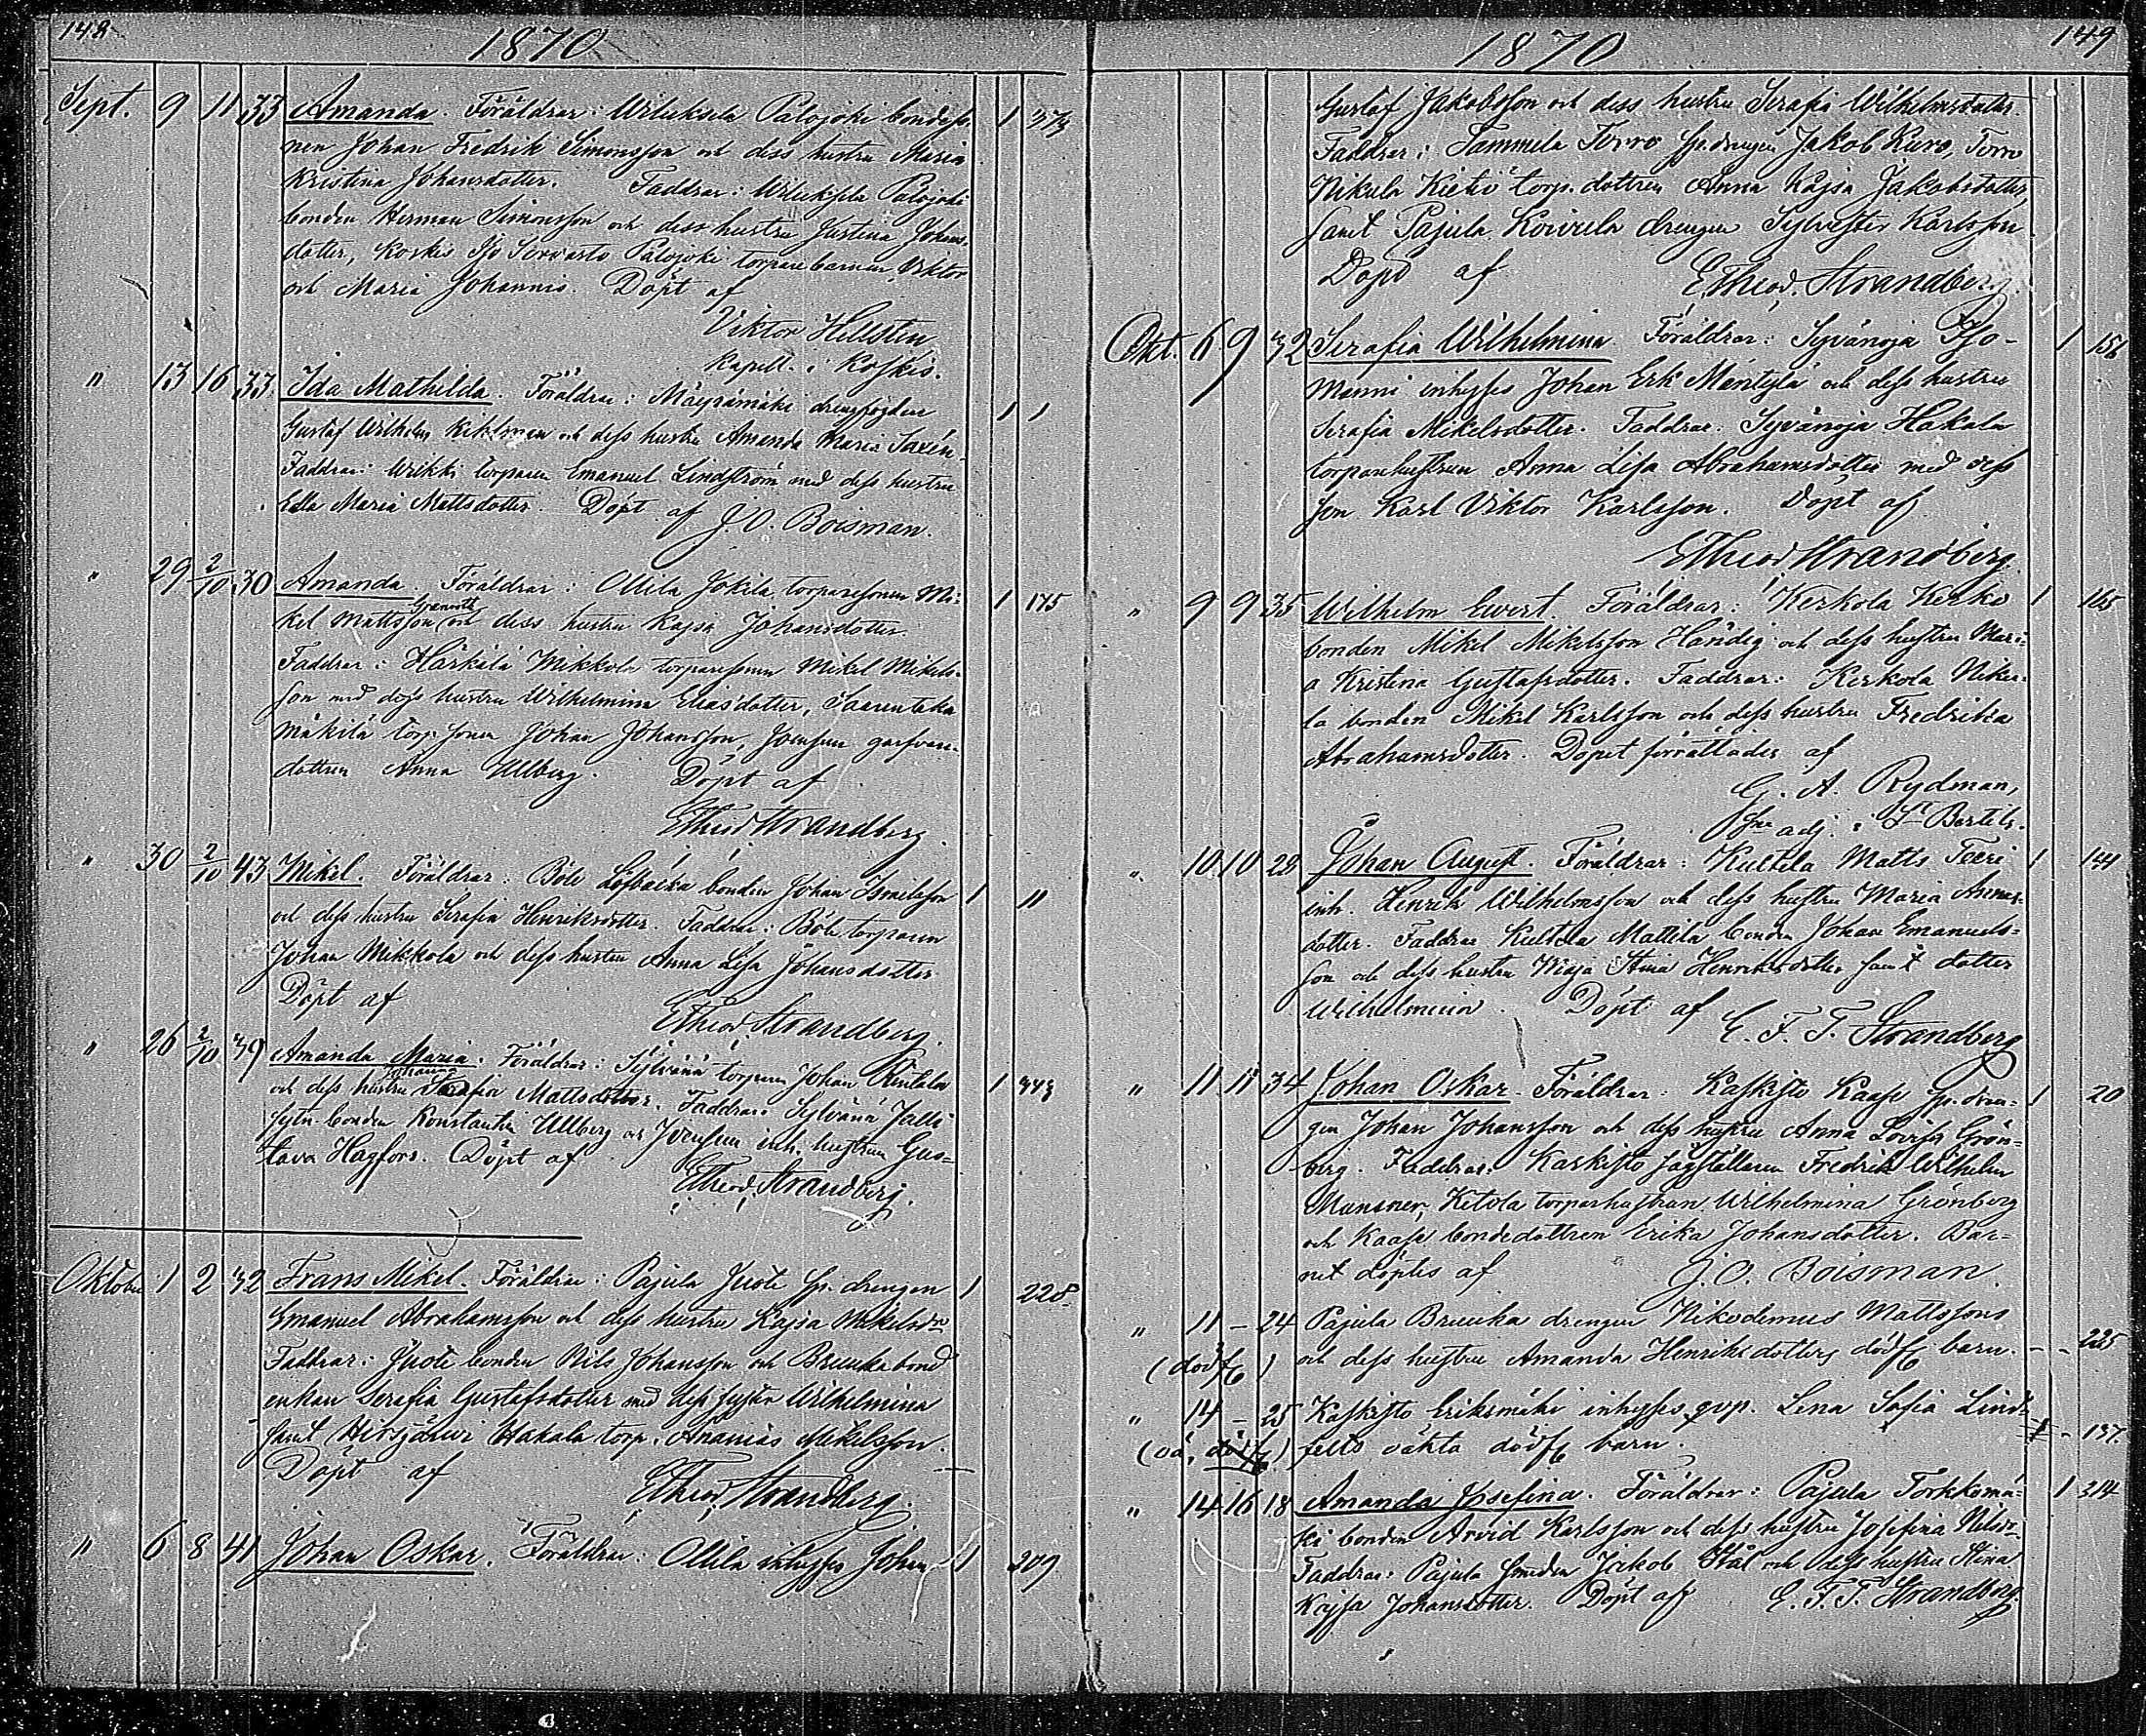 148
1870
Sept. 9 11 33 Amanda. Föräldrar: Wiluksela Palojoki bondesso-
nen Johan Fredrik Simonsson och dess hustru Maria 1 373
Kristina Johansdotter. Faddrar: Wiluksela Palojoki
bonden Herman Simonsson och dess hustru Justina Johans-
dotter, Koskis Sorvasto Palojoki torparebarnen Viktor
och Maria Johannis. Döpt af
Viktor Hellsten
kapell. i Koskis.
" 13 16 33 Ida Mathilda. Föräldrar: Mäyrämäki drengfogden
Gustaf Wilhelm Kihlman och dess hustru Amanda Maria Saxén. 1 1
Faddrar: Wrikki torparen Emanuel Lindström med dess hustru
Edla Maria Mattsdotter. Döpt af J. O. Boisman.
" 29 2/10 30 Amanda. Föräldrar: Ollila Jokila torparesonen Mi- 1 175
kel Mattsson Granroth och dess hustru Kajsa Johansdotter.
Faddrar: Härkälä Mikkola torparesonen Mikel Mikels-
son med dess hustru Wilhelmina Eliasdotter, Saarentaka
Mäkilä torp.sonen Johan Johansson, Joensuu garfvare-
dottren Anna Ullberg. Döpt af
E Theod Strandberg
" 30 2/10 43 Mikel. Föräldrar: Böle Löfbacka bonden Johan Ismelsson 1 11
och dess hustru Serafia Henriksdotter. Faddrar: Böle torparen
Johan Mikkola och dess hustru Anna Lisa Johansdotter
Döpt af
E Theod. Strandberg.
" 26 2/10 39 Amanda Maria. Föräldrar: Sylvänä torparen Johan Rintala
och dess hustru Johanna Serafia Mattsdotter. Faddrar: Sylvänä Jalli 1 343
sytn. bonden Konstantin Ullberg och Joensuu inh. hustrun Gus-
tava Hagfors. Döpt af
E Theod. Strandberg.
Oktober 1 2 32 Frans Mikel. Föräldrar: Pajula Juoti sp. drengen 1 228
Emanuel Abrahamsson och dess hustru Kajsa Mikelsdr
Faddrar: Juoti bonden Nils Johansson och Bruuka bond
enkan Serafia Gustafsdotter med dess syster Wilhelmina
samt Hirsjärvi Hakala torp. Ananias Mikelsson.
Döpt af
E Theod. Strandberg.
" 6 8 41 Johan Oskar. Föräldrar: Ollila inhyses Johan 1 209
149
1870
Gustaf Jakobsson och dess hustru Serafia Wilhelmsdotter.
Faddrar: Tammela Torro sp. drengen Jakob Kuro, Torro
Nikula torp. dottren Anna Kajsa Jakobsdotter,
samt Pajula Koivula drengen Sylvester Karlsson
Döpt af E. Theod. Strandberg.
Okt. 6 9 32 Serafia Wilhelmina. Föräldrar: Syvänoja Iso- 1 156
Manni inhyses Johan Erk Mäntylä och dess hustru
Serafia Mikelsdotter. Faddrar: Syvänoja Hakala
torparehustrun Anna Lisa Abrahamsdotter med dess
son Karl Viktor Karlsson. Döpt af
E Theod Strandberg
" 9 9 35 Wilhelm Ewert. Föräldrar: Kerkola Kerko 1 165
bonden Mikel Mikelsson Händig och dess hustru Mari-
a Kristina Gustafsdotter. Faddrar: Kerkola Niku-
la bonden Mikel Karlsson och dess hustru Fredrika
Abrahamsdotter. Dopet förrättades af
G. A. Rydman,
adj. i St Bertils.
" 10 10 28 Johan August. Föräldrar: Kultela Matts Teeri 1 144
inh. Henrik Wilhelmsson och dess hustru Maria
dotter. Faddrar Kultela Mattila bonden Johan Emanuels-
son och dess hustru Maja Stina Henriksdotter samt dotter
Wilhelmina. Döpt af
E. F. T. Strandberg
" 11 11 34 Johan Oskar. Föräldrar: Kaskisto Kaase sp. dren- 1 20
gen Johan Johansson och dess hustru Anna Lovisa Grön-
berg. Faddrar: Karkisto Fredrik Wilhelm
Mansner, Ketola torparhustrun Wilhelmina Grönberg
och Kaase bondedottren Erika Johansdotter. Bar-
net döptes af J. O. Boisman.
" 11 – 24 Pajula Bruuka drengen Nikodemus Mattssons
(dödf) och dess hustrus Amanda Henriksdotters dödf barn. – – 225
" 14 – 25 Kaskisto Eriksmäki inhyses qvp. Lena Sofia Lind-
(oä, dödf) felts oäkta dödf barn. 137.
" 14 16 18 Amanda Josefina. Föräldrar: Pajula Torkkomä- 1 314
ki bonden Arvid Karlsson och dess hustru Josefina Nilsdr.
Faddrar: Pajula smeden Jakob Stål och dess hustru Stina
Kajsa Johansdotter. Döpt af E. F. T. Strandberg.